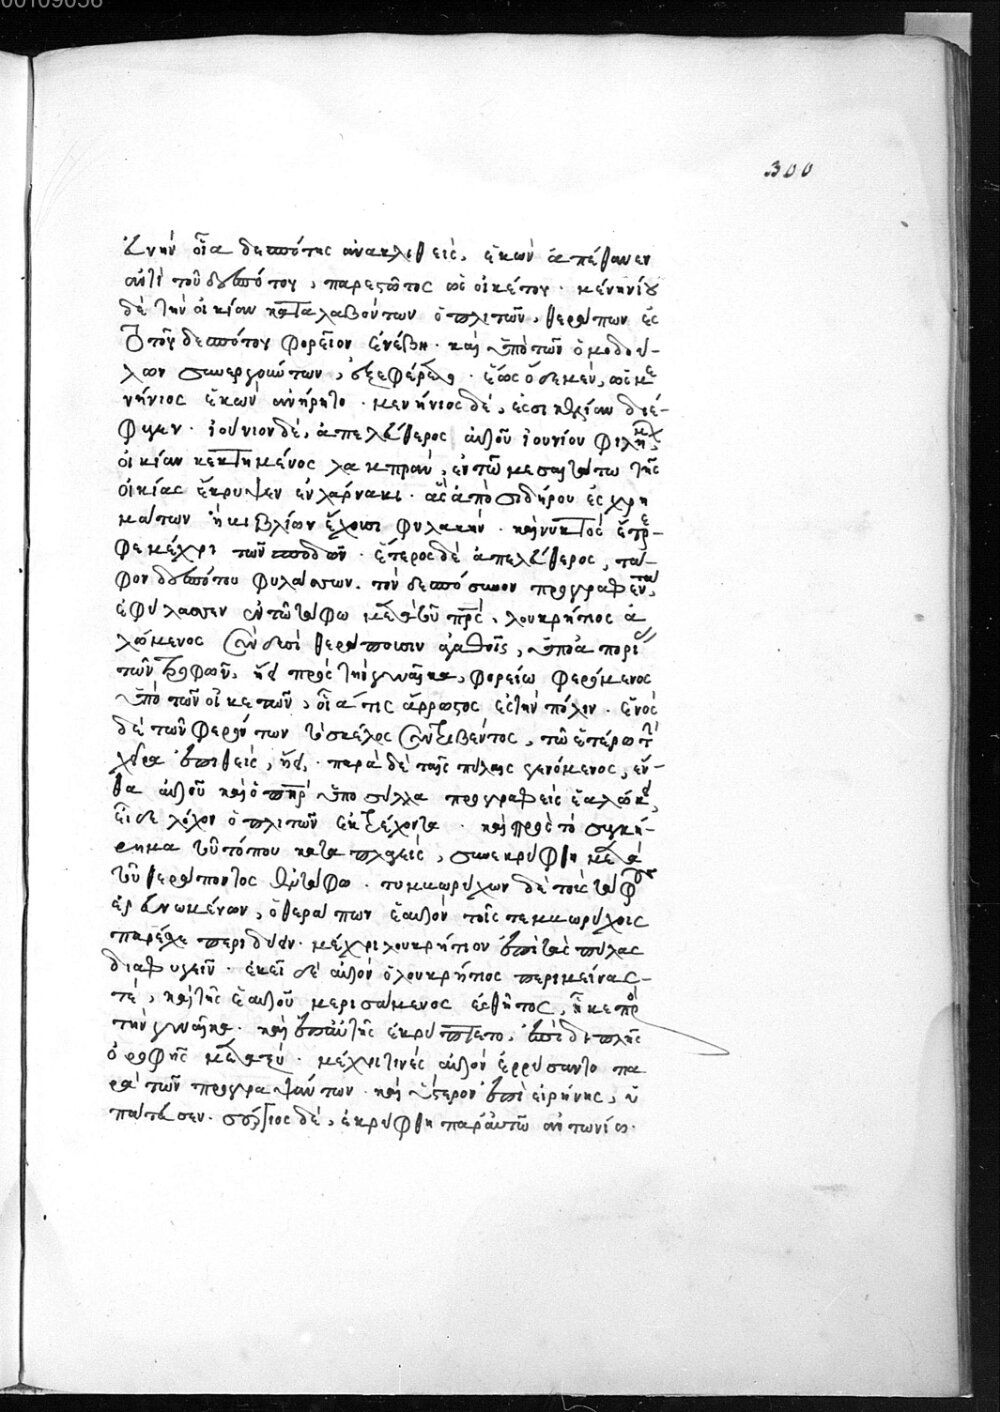 300
εὐνὴν οἷα δεσπότης ἀνακλιθεὶς, ἑκὼν ἀπέθανεν
ἀντὶ τοῦ δεσπότου, παρεστῶτος ὡς οἰκέτου. μενηνίου
δὲ τὴν οἰκίαν καταλαβόντων ὁπλιτῶν, θεράπων ἐς
τὸ τοῦ δεσπότου φορεῖον ἐνέβη. καὶ ὑπὸ τῶν ὁμοδού-
λων συνεργούντων, ἐξεφέρετο. ἕως ὅσε μὲν, ὡς με
νήνιος ἑκὼν ἀνήρητο. μενήνιος δὲ, ἐς σικελίαν διέ-
φυγεν. ἰούνιον δὲ, ἀπελεύθερος αὐτοῦ ἰουνίου φιλήμων,
οἰκίαν κεκτημένος λαμπρὰν, ἐν τῶ μεσαιτάτω τῆς
οἰκίας ἔκρυψεν ἐν λάρνακι. ἃς ἀπὸ σιδήρου ἐς χρη
μάτων ἢ βιβλίων ἔχουσι φυλακήν. καὶ νυκτὸς ἔτρε
φε μέχρι τῶν σπονδῶν. ἕτερος δὲ ἀπελεύθερος, τά-
φον δεσπότου φυλάσσων. τὸν δεσπόσυνον προγραφέντα,
ἐφύλασσεν ἐν τῶ τάφω μετὰ τοῦ πρς. λουκρήτιος ἀ
λώμενος σὺν δυσὶ θεράπουσιν ἀγαθοῖς, ὑπὸ ἀπορί
τῶν τροφῶν, ἤει πρὸς τὴν γυναῖκα, φορείω φερόμενος
ὑπὸ τῶν οἰκετῶν, οἷά τις ἄρρωστος ἐς τὴν πόλιν. ἑνὸς
δὲ τῶν φερόντων τὸ σκέλος συντριβέντος, τῶ ἑτέρω τὴν
χεῖρα ἐπιθεὶς, ἤει. παρὰ δὲ ταῖς πύλαις γενόμενος, ἔν-
θα αὐτοῦ καὶ ὁ πηρ ὑπὸ σύλλα προγραφεὶς ἑαλώκει,
εἶδε λόχον ὁπλιτῶν ἐκτρέχοντα. καὶ πρὸς τὸ συγκύ-
ρημα τοῦ τόπου καταπλαγεὶς, συνεκρύφθη μετὰ
τοῦ θεράποντος ἐν τάφω. τυμβωρύχων δὲ τοὺς τάφους
ἐρευνωμένων, ὁ θεράπων ἑαυτὸν τοῖς τυμβωρύχοις
παρέσχε περιδύειν. μέχρι λουκρήτιον ἐπὶ τὰς πύλας
διαφυγεῖν. ἐκεῖ δὲ αὐτὸν ὁ λουκρήτιος περιμείνας-
τὲ, καὶ τῆς ἑαυτοῦ μερισάμενος ἐσθῆτος, ἧκε πρὸς
τὴν γυναῖκα. καὶ ὑπ' αὐτῆς ἐκρύπτετο, ἐπὶ διπλῆς
ὀροφῆς μεταξύ. μέχρι τινὲς αὐτὸν ἐρρύσαντο πα
ρὰ τῶν προγραψάντων. καὶ ὕστερον ἐπὶ εἰρήνης, ὑ
πάτευσεν. σέργιος δὲ, ἐκρύφθη παρ' αὐτῶ ἀντωνίω.